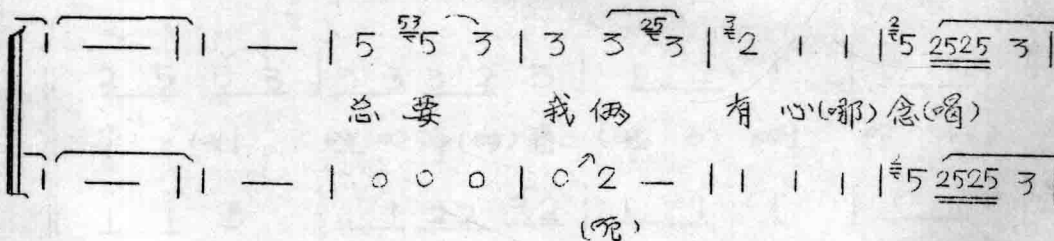 1 — — | 1 — — | 5 535 3 | 3 3 253 | 32 1 1 | 25 2525 3 |
总要 我俩 有心(哪)念(喝)
1 — — | 1 — — | 0 0 0 | 0 2 — | 1 1 1 | 25 2525 3